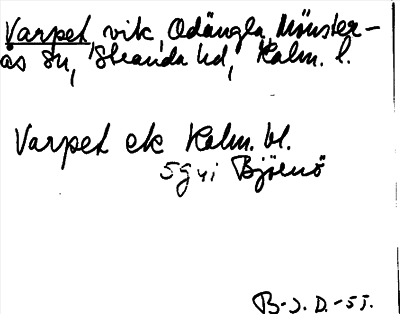 Varpet, vik, Odängla, Mönster-
ås sn, Stranda hd, Kalm. l.
Varpet ek Kalm. bl.
5g vi Björnö
B-J. D.-53.